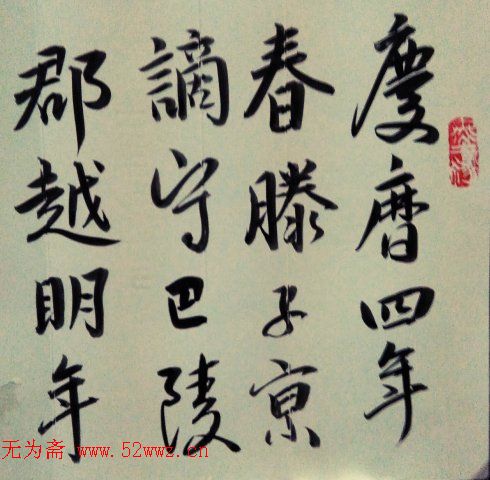 慶曆四年
春滕子京
谪守巴陵
郡越明年
无为斋 www.52wwz.cn